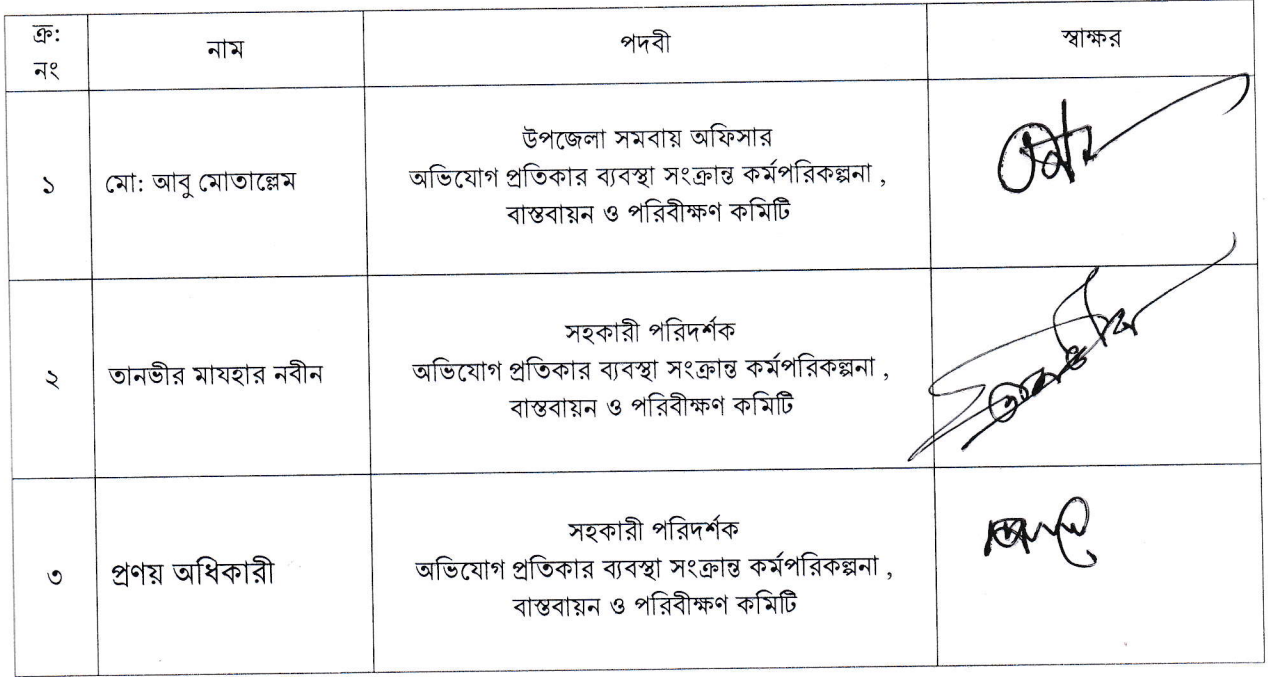 ক্র: নং নাম পদবী স্বাক্ষর
১ মো: আবু মোতাল্লেম উপজেলা সমবায় অফিসার
অভিযোগ প্রতিকার ব্যবস্থা সংক্রান্ত কর্মপরিকল্পনা ,
বাস্তবায়ন ও পরিবীক্ষণ কমিটি
২ তানভীর মাযহার নবীন সহকারী পরিদর্শক
অভিযোগ প্রতিকার ব্যবস্থা সংক্রান্ত কর্মপরিকল্পনা ,
বাস্তবায়ন ও পরিবীক্ষণ কমিটি
৩ প্রণয় অধিকারী সহকারী পরিদর্শক
অভিযোগ প্রতিকার ব্যবস্থা সংক্রান্ত কর্মপরিকল্পনা ,
বাস্তবায়ন ও পরিবীক্ষণ কমিটি